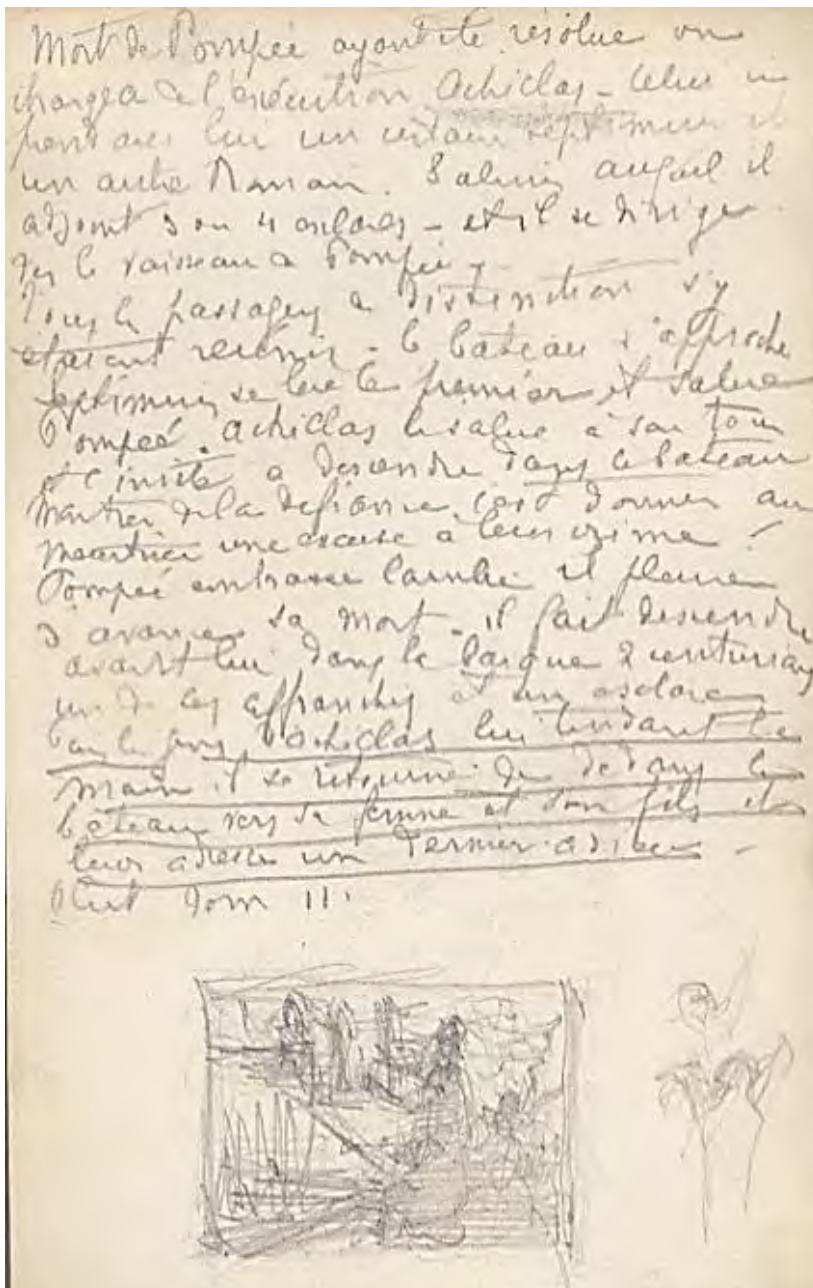 Mort de Pompée ayant été résolue on
chargea de l'exécution Achillas – Celui ci
prend avec lui un certain Septimius et
un autre Romain. Salvius auquel il
adjoint 3 ou 4 esclaves – et il se dirige
vers le vaisseau de Pompée –
Tous les passagers de distinction s'y
étaient réunis – le bateau s'approche
Septimius se leve le premier et salue
Pompée. Achillas le salue à son tour
et l'invite a descendre dans le bateau
montrer de la defiance, c'est donner au
meurtrier une excuse à leur crime –
Pompée embrasse Cornélie et pleure
d'avance sa mort – il fait descendre
avant lui dans la barque 2 centurions
un de ces affranchis et un esclave
Achillas lui tendant la
main il se retourne de dedans le
bateau vers sa femme et son fils et
leur adresse un dernier adieu –
Plut Tom 11.